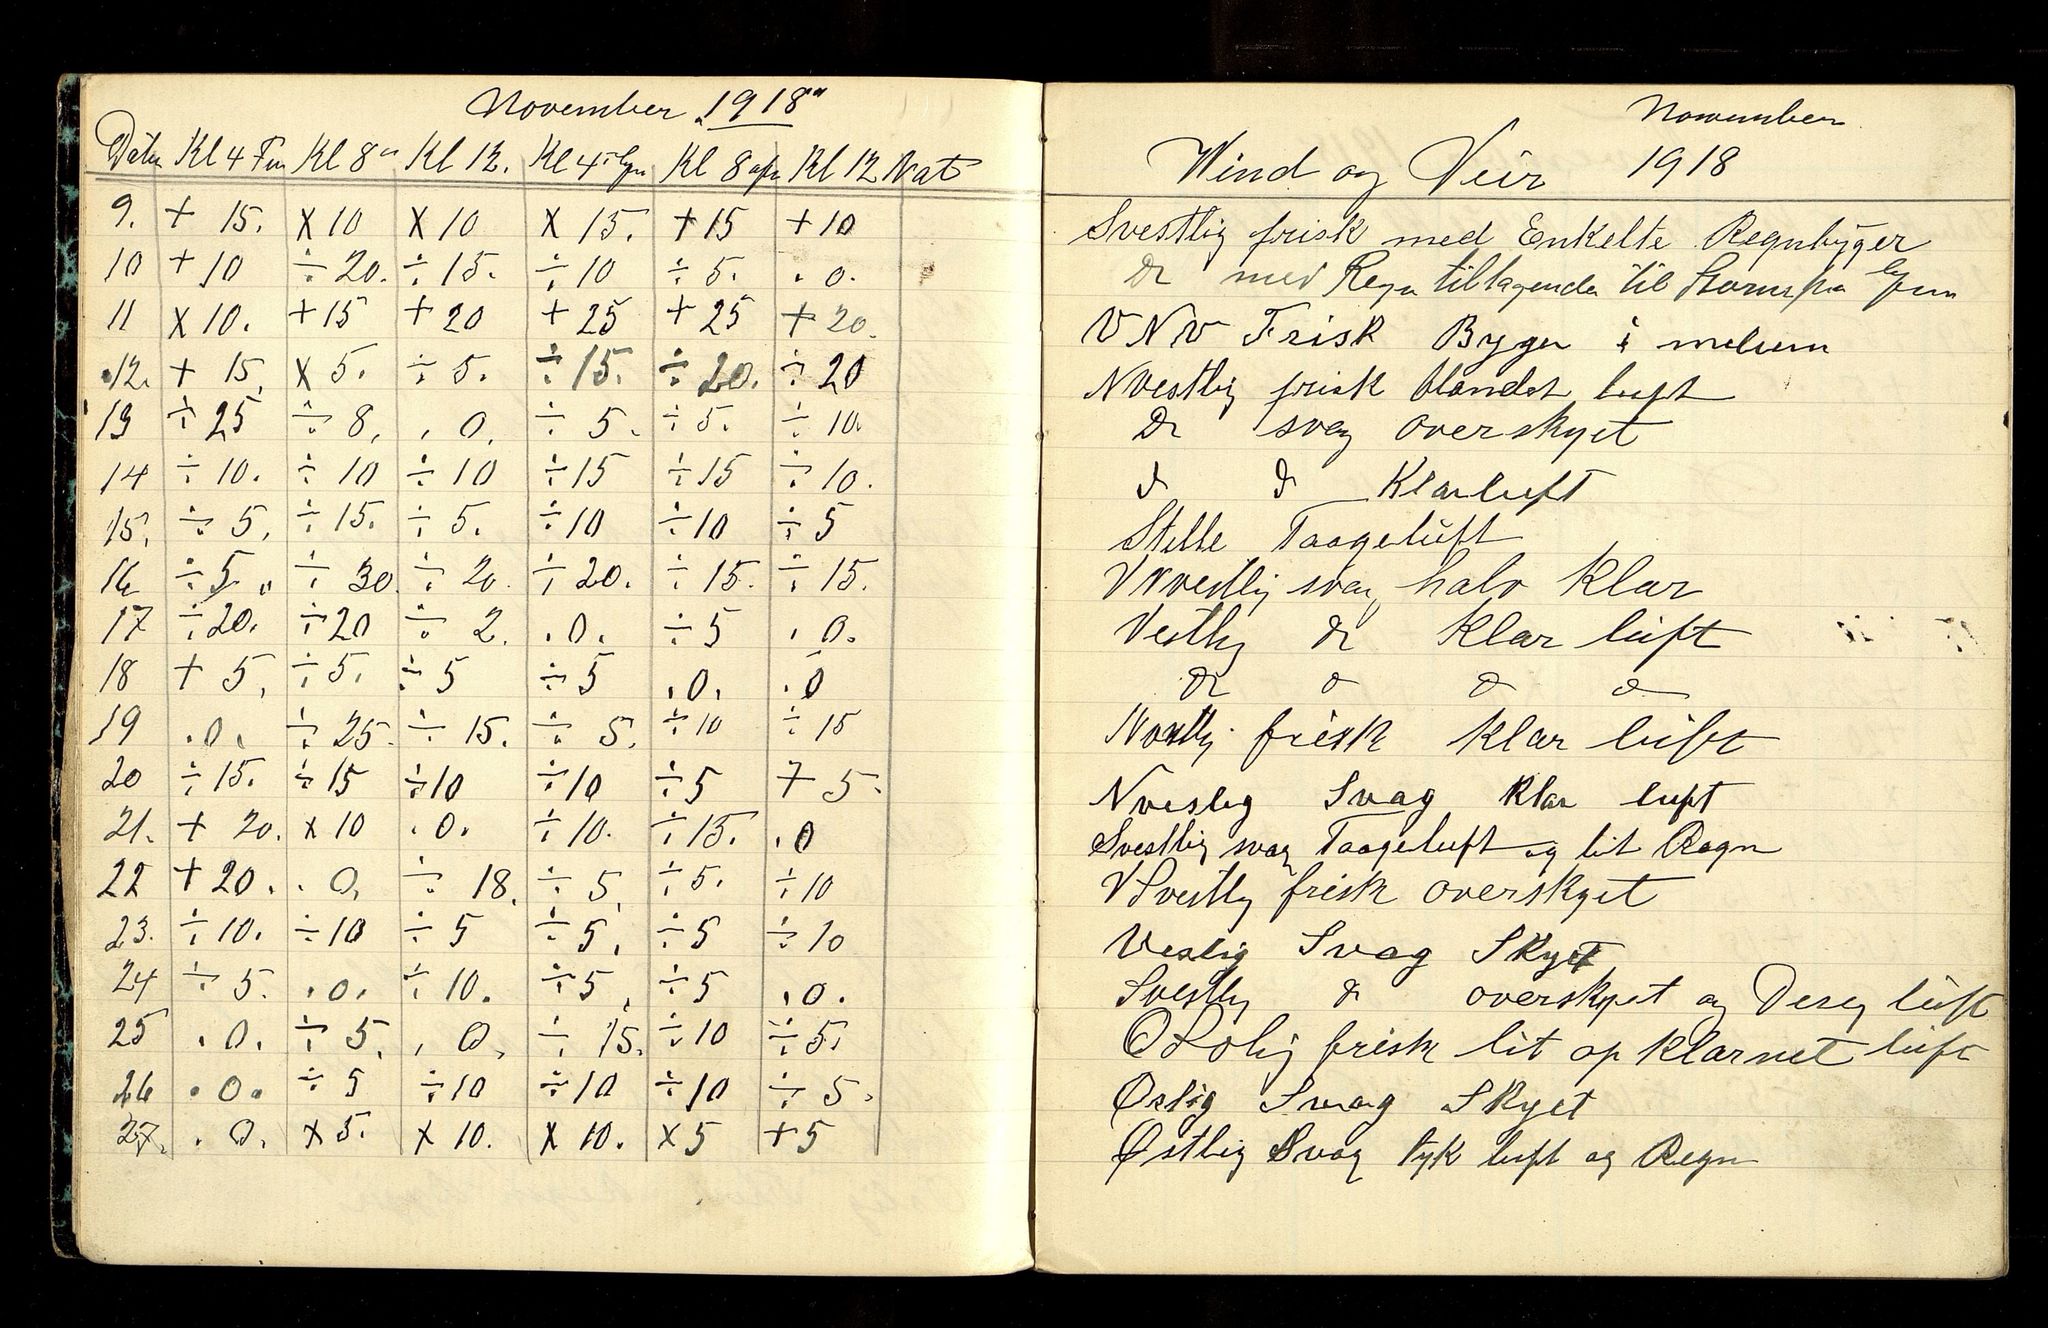 November 1918
Datu Kl 4 Fm Kl 8 " Kl 12. Kl 4 Kl 8 Kl 12 Nat
9. + 15. × 10 × 10 × 15. + 15 + 10
10 + 10 ÷ 20. ÷ 15. ÷ 10 ÷ 5. . 0.
11 × 10. + 15 + 20 + 25 + 25 + 20.
12. + 15. × 5. ÷ 5. ÷ 15. ÷ 20. ÷ 20
13 ÷ 25 ÷ 8. . 0. ÷ 5. ÷ 5. ÷ 10.
14 ÷ 10. ÷ 10 ÷ 10 ÷ 15 ÷ 15 ÷ 10.
15. ÷ 5. ÷ 15. ÷ 5. ÷ 10 ÷ 10 ÷ 5
16 ÷ 5 " ÷ 30. ÷ 20. ÷ 20. ÷ 15. ÷ 15.
17 ÷ 20. ÷ 20 ÷ 2. . 0. ÷ 5 . 0.
18 + 5. ÷ 5. ÷ 5 ÷ 5 . 0. . 0
19 . 0. ÷ 25. ÷ 15. ÷ 5. ÷ 10 ÷ 15
20 ÷ 15. ÷ 15 ÷ 10 ÷ 10 ÷ 5 + 5.
21. + 20. × 10 . 0. ÷ 10. ÷ 15. . 0
22 + 20. . 0. ÷ 18. ÷ 5. ÷ 5. ÷ 10
23. ÷ 10. ÷ 10 ÷ 5 ÷ 5. ÷ 5 ÷ 10
24 ÷ 5. . 0. ÷ 10. ÷ 5. ÷ 5 . 0.
25 . 0. ÷ 5. . 0. ÷ 15. ÷ 10 ÷ 5.
26 . 0. ÷ 5 ÷ 10 ÷ 10 ÷ 10 ÷ 5.
27. . 0. × 5. × 10. × 10. × 5 + 5
November
Wind og Veir 1918
Svestlig frisk med Enkelte Regnbyger
Do med Regn tiltagende til Storm paa
V N V Frisk Byger i melem
NVestlig frisk blandet luft
Do svag overskyet
do do Klarluft
Stille Taageluft
VNvestlig svag halv Klar
Vestlig do Klar luft
do do do do
Nvestlig frisk klar luft
Nveslig Svag Klar luft
Svestlig svag Taageluft og lit Regn
VSvestlig frisk overskyet
Veslig Svag Skyet
Svestlig do overskyet og Diseg luft
frisk lit op klarnet luft
Øslig Svag Skyet
Østlig Svag tyk luft og Regn